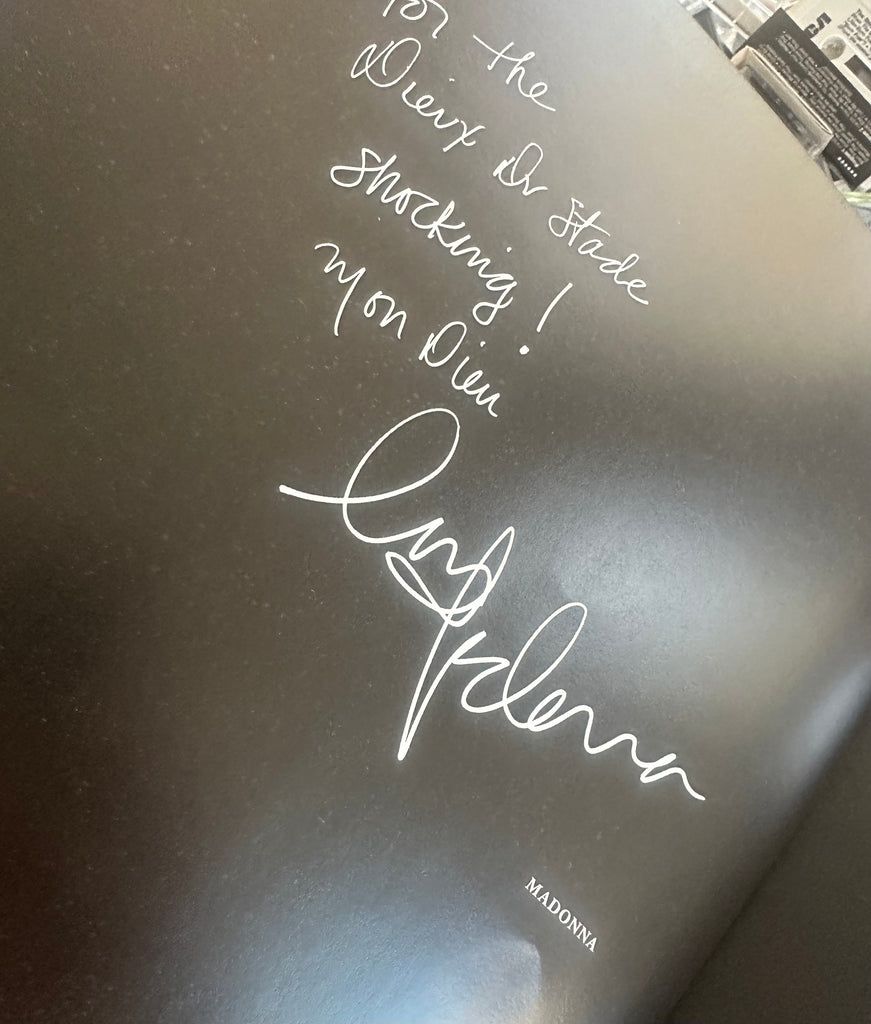 for the
Dieux Du Stade
shocking!
Mon Dieu
Madonna
MADONNA